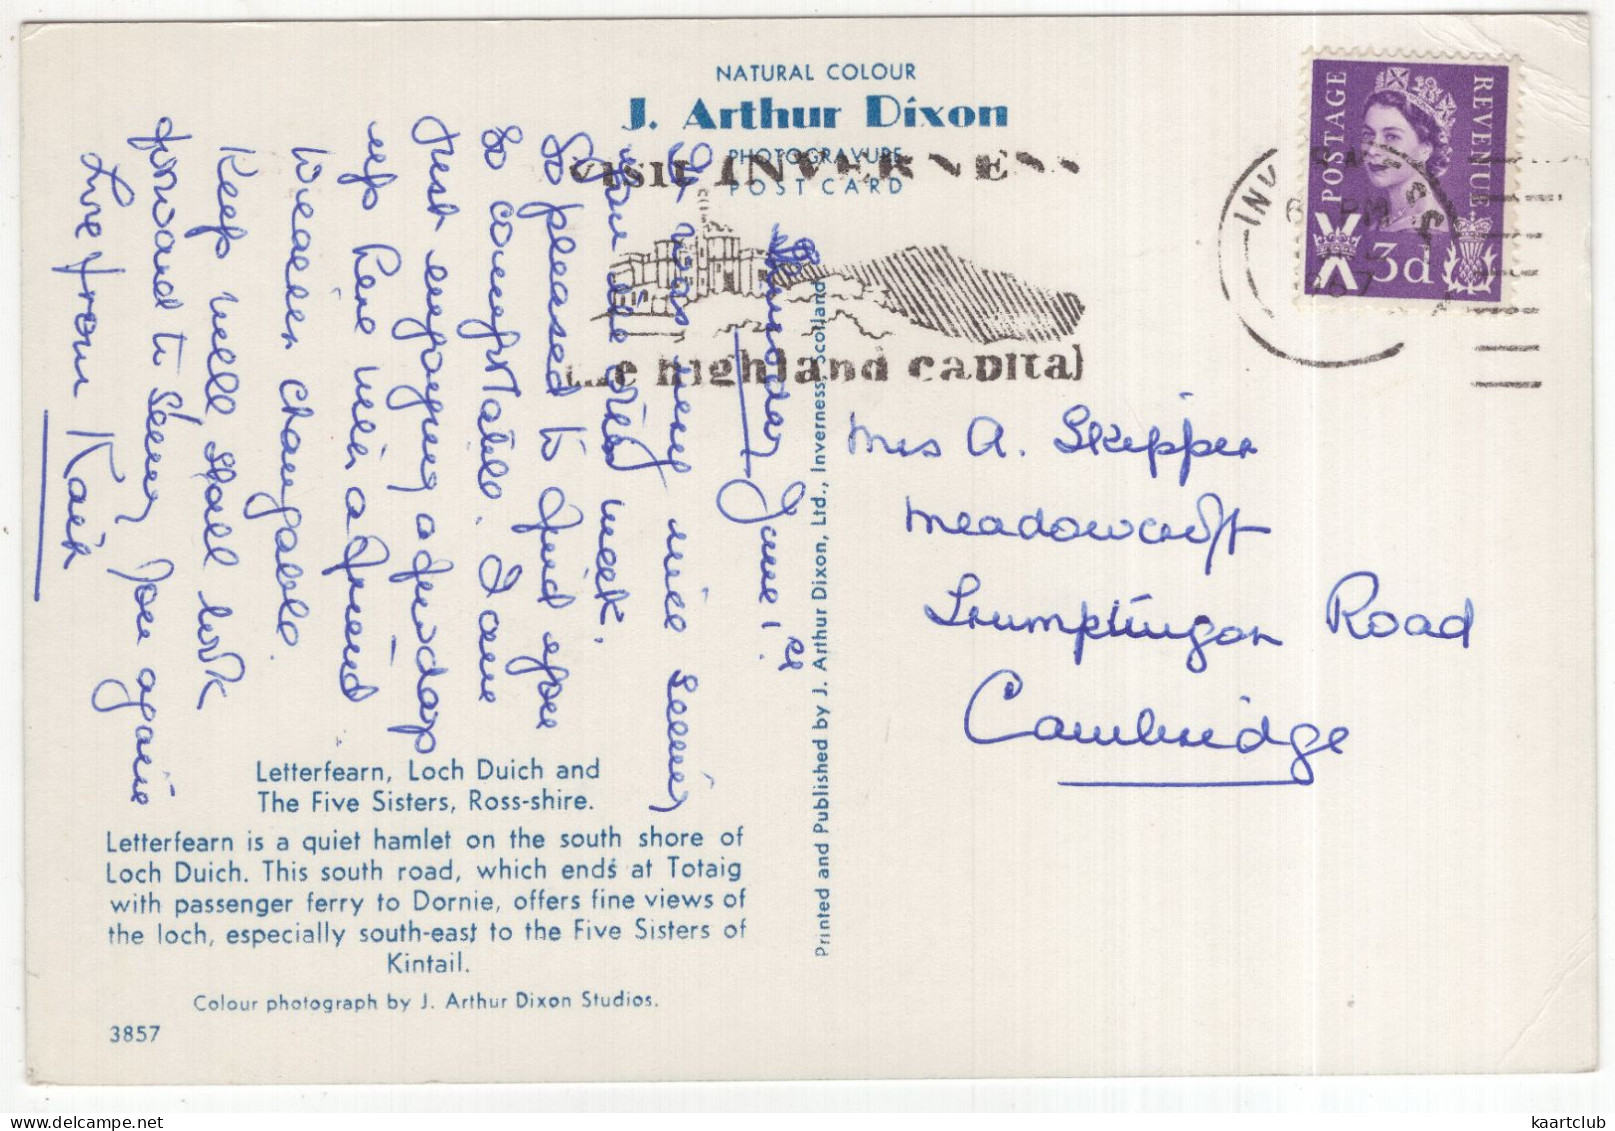 NATURAL COLOUR
J. Arthur Dixon
PHOTOGRAVURE
POST CARD
VISIT INVERNESS
the highland capital
POSTAGE
REVENUE
3d
PM
Mrs A. Skipper
Meadowcroft
Trumpington Road
Cambridge
June 1
It was very nice seeing
you one week.
So pleased to find you
so comfortable. I am
just enjoying a few days
up here with a friend
Weather changable.
Keep well, shall look
forward to seeing you again
Love from
Letterfearn, Loch Duich and
The Five Sisters, Ross-shire.
Letterfearn is a quiet hamlet on the south shore of
Loch Duich. This south road, which ends at Totaig
with passenger ferry to Dornie, offers fine views of
the loch, especially south-east to the Five Sisters of
Kintail.
Colour photograph by J. Arthur Dixon Studios.
3857
Printed and Published by J. Arthur Dixon, Ltd., Inverness, Scotland
kaartclub